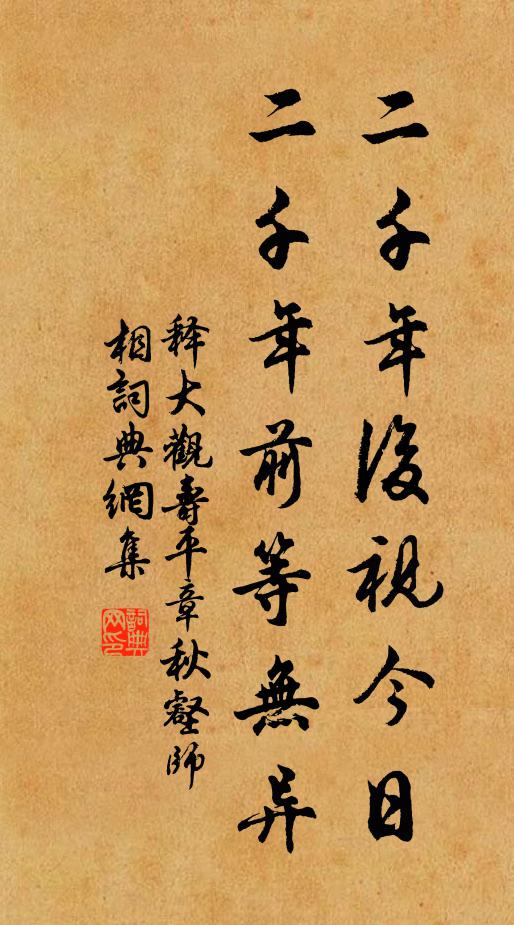 二千年後視今日
二千年前等無异
释大觀壽平章秋壑師
相詞典網集
詞典
网印